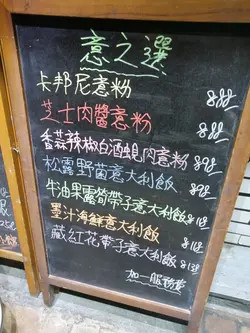 意之選
卡邦尼意粉 $88
芝士肉醬意粉 $88
香蒜辣椒白酒蜆肉意粉 $98
松露野菌意大利飯 $98
牛油果露筍帶子意大利飯 $118
墨汁海鮮意大利飯 $118
藏紅花帶子意大利飯 $138
加一服務費